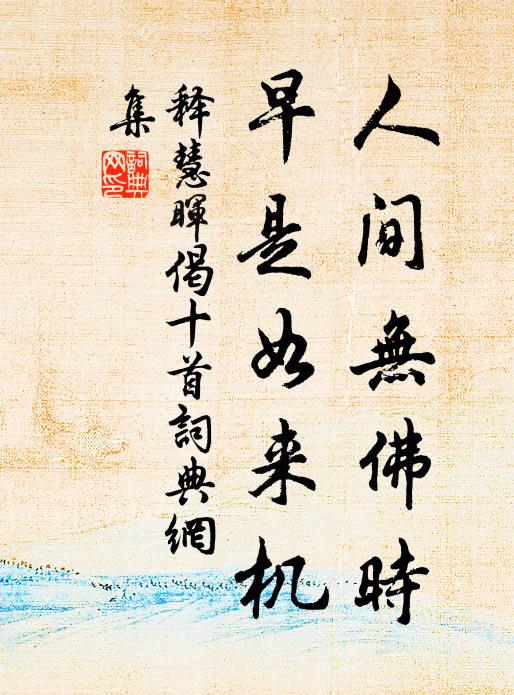 人間無佛時
早是如来机
释慧暉偈十首詞典網
集
詞典
网印